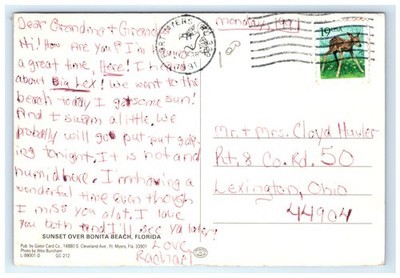 Dear Grandma & Grandpa
Hi! How are you? I'm having
a great time, Here! I heard
about Big Lex! We went to the
beach today I got some sun!
And I swam a little. We
probally will go put put golf-
ing tonight. It is hot and
humid here. I'm having a
wonderful time even though
I miss you alot. I love
you both and I'll see ya later,
Love,
Rachael
SUNSET OVER BONITA BEACH, FLORIDA
Pub. by Gator Card Co., 14880 S. Cleveland Ave., Ft. Myers, Fla. 33901
Photo by Wes Burnham
GC 212
FORT MYERS
monday, 1991
19
Mr. & Mrs. Cloyd
Rt. 8 Co. Rd. 50
Lexington, Ohio
44904